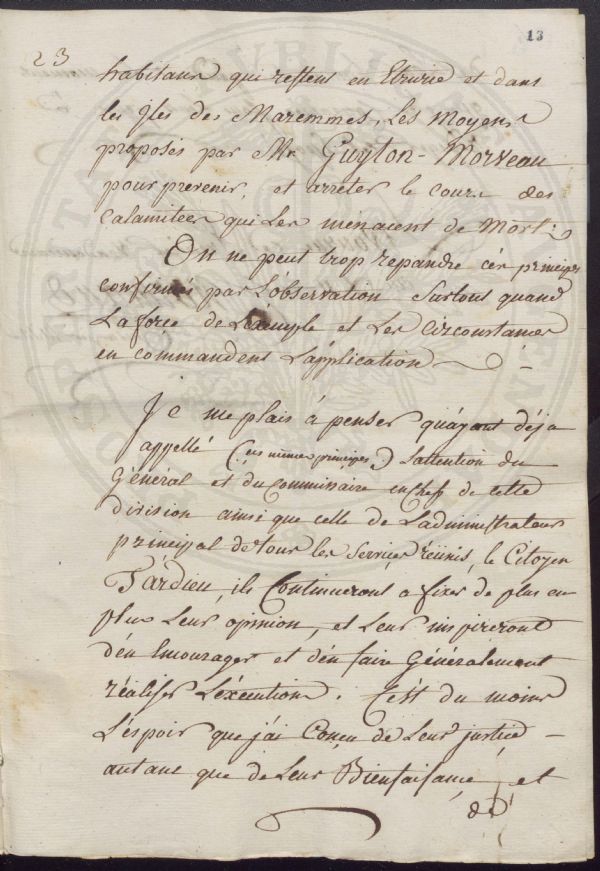 13
23
habitans qui restent en Etrurie et dans
les Isles des Maremmes, Les Moyens
proposés par Mr Guyton-Morveau
pour prevenir, et arrêter le cours des
Calamitées qui Les menacent de Mort.
On ne peut trop repandre ces principes
confirmés par L'observation Surtout quand
La force de L'exemple et Les Circonstances
en commandent L'application
Je me plais à penser qu'ayant déja
appellé (ces mêmes principes) L'attention du
Général et du Commissaire en chef de cette
division ainsi que celle de L'administrateur
principal de tous les Services réunis, le Citoyen
Tardieu, ils Continueront a fixer de plus en
plus Leur opinion, et Leur inspireront
d'en Encourager et d'en faire Généralement
réaliser L'éxécution. C'est du moins
L'espoir que j'ai Conçu de Leur justice
autant que de Leur Bienfaisance, et
de